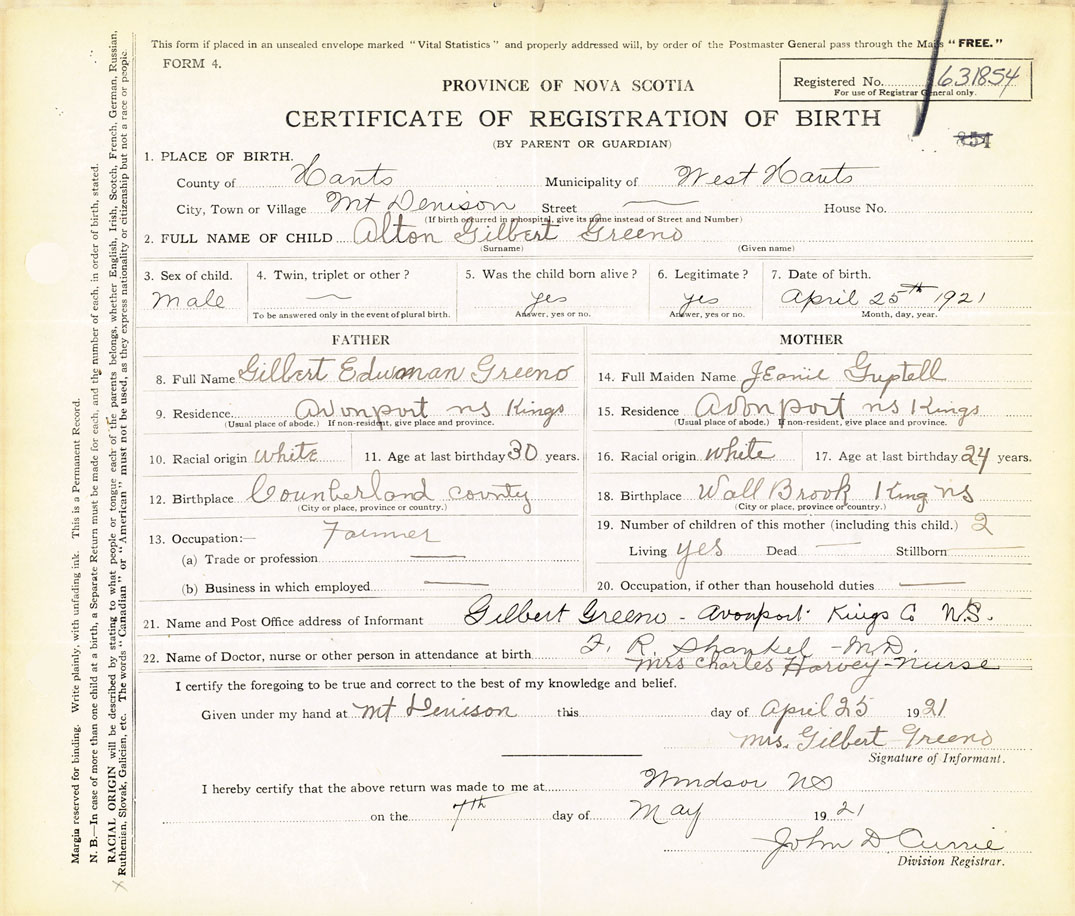 This form if placed in an unsealed envelope marked "Vital Statistics" and properly addressed will, by order of the Postmaster General pass through the Mails "FREE."
FORM 4.
Registered No. 631854
For use of Registrar General only.
PROVINCE OF NOVA SCOTIA
CERTIFICATE OF REGISTRATION OF BIRTH
(BY PARENT OR GUARDIAN)
1. PLACE OF BIRTH.
County of Hants Municipality of West Hants
City, Town or Village Mt Denison Street — House No.
(If birth occurred in a hospital, give its name instead of Street and Number)
2. FULL NAME OF CHILD Alton Gilbert Greeno
(Surname) (Given name)
3. Sex of child. 4. Twin, triplet or other? 5. Was the child born alive? 6. Legitimate? 7. Date of birth.
Male — yes yes April 25th 1921
To be answered only in the event of plural birth. Answer, yes or no. Answer, yes or no. Month, day, year.
FATHER MOTHER
8. Full Name Gilbert Edwman Greeno 14. Full Maiden Name JEanie Guptell
9. Residence Avonport ns Kings 15. Residence Avonport ns Kings
(Usual place of abode.) If non-resident, give place and province. (Usual place of abode.) If non-resident, give place and province.
10. Racial origin white 11. Age at last birthday 30 years. 16. Racial origin white 17. Age at last birthday 24 years.
12. Birthplace Counberland county 18. Birthplace Wall Brook King ns
(City or place, province or country.) (City or place, province or country.)
13. Occupation:— Farmer 19. Number of children of this mother (including this child.) 2
(a) Trade or profession — Living yes Dead — Stillborn —
(b) Business in which employed — 20. Occupation, if other than household duties —
21. Name and Post Office address of Informant Gilbert Greeno - Avonport Kings Co N.S.
22. Name of Doctor, nurse or other person in attendance at birth F. R. Shankel - M.D.
Mrs Charles Harvey - Nurse
I certify the foregoing to be true and correct to the best of my knowledge and belief.
Given under my hand at Mt Denison this day of April 25 1921
Mrs. Gilbert Greeno
Signature of Informant.
I hereby certify that the above return was made to me at Windsor NS
on the 7th day of May 1921
John D Currie
Division Registrar.
Margin reserved for binding. Write plainly, with unfading ink. This is a Permanent Record.
N. B.—In case of more than one child at a birth, a Separate Return must be made for each, and the number of each, in order of birth, stated.
RACIAL ORIGIN will be described by stating to what people or tongue each of the parents belongs, whether English, Irish, Scotch, French, German, Russian,
Ruthenian, Slovak, Galician, etc. The words "Canadian" or "American" must not be used, as they express nationality or citizenship but not a race or people.